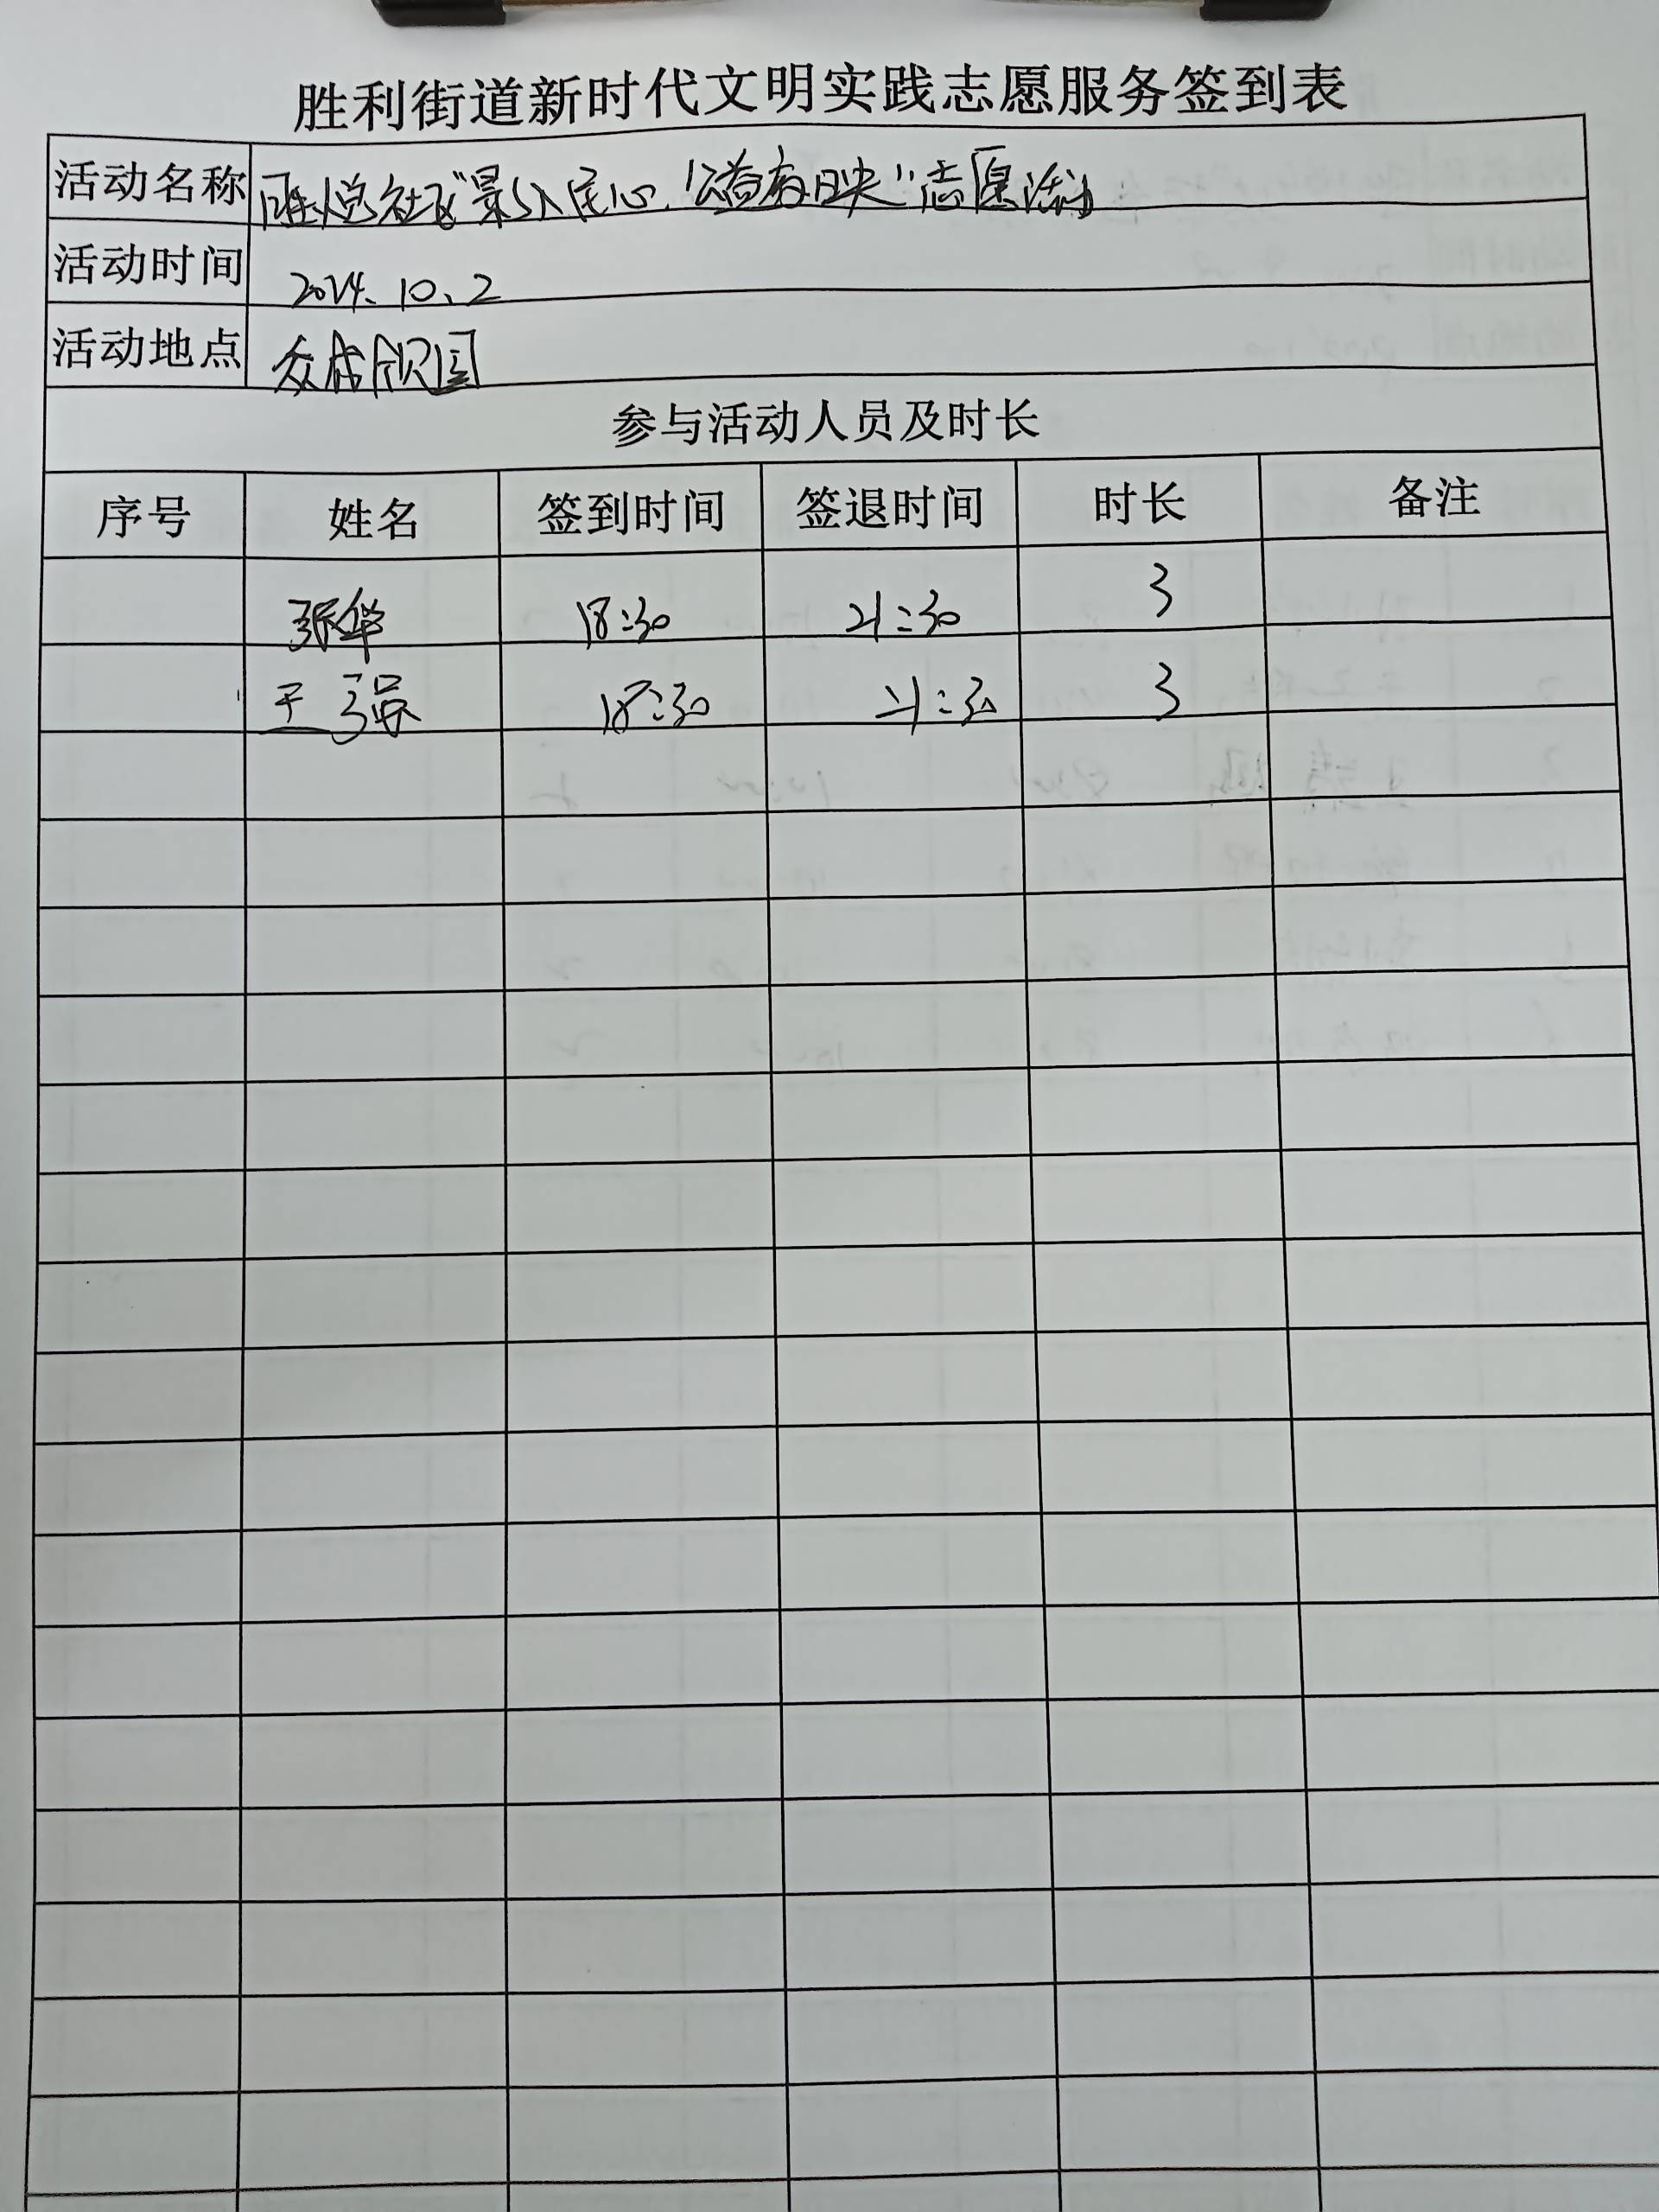 胜利街道新时代文明实践志愿服务签到表
活动名称 胜悦社区“影入民心，公益有映”志愿活动
活动时间 2024.10.2
活动地点 众成欣园
参与活动人员及时长
序号 姓名 签到时间 签退时间 时长 备注
张华 18:30 21:30 3
王强 18:30 21:30 3